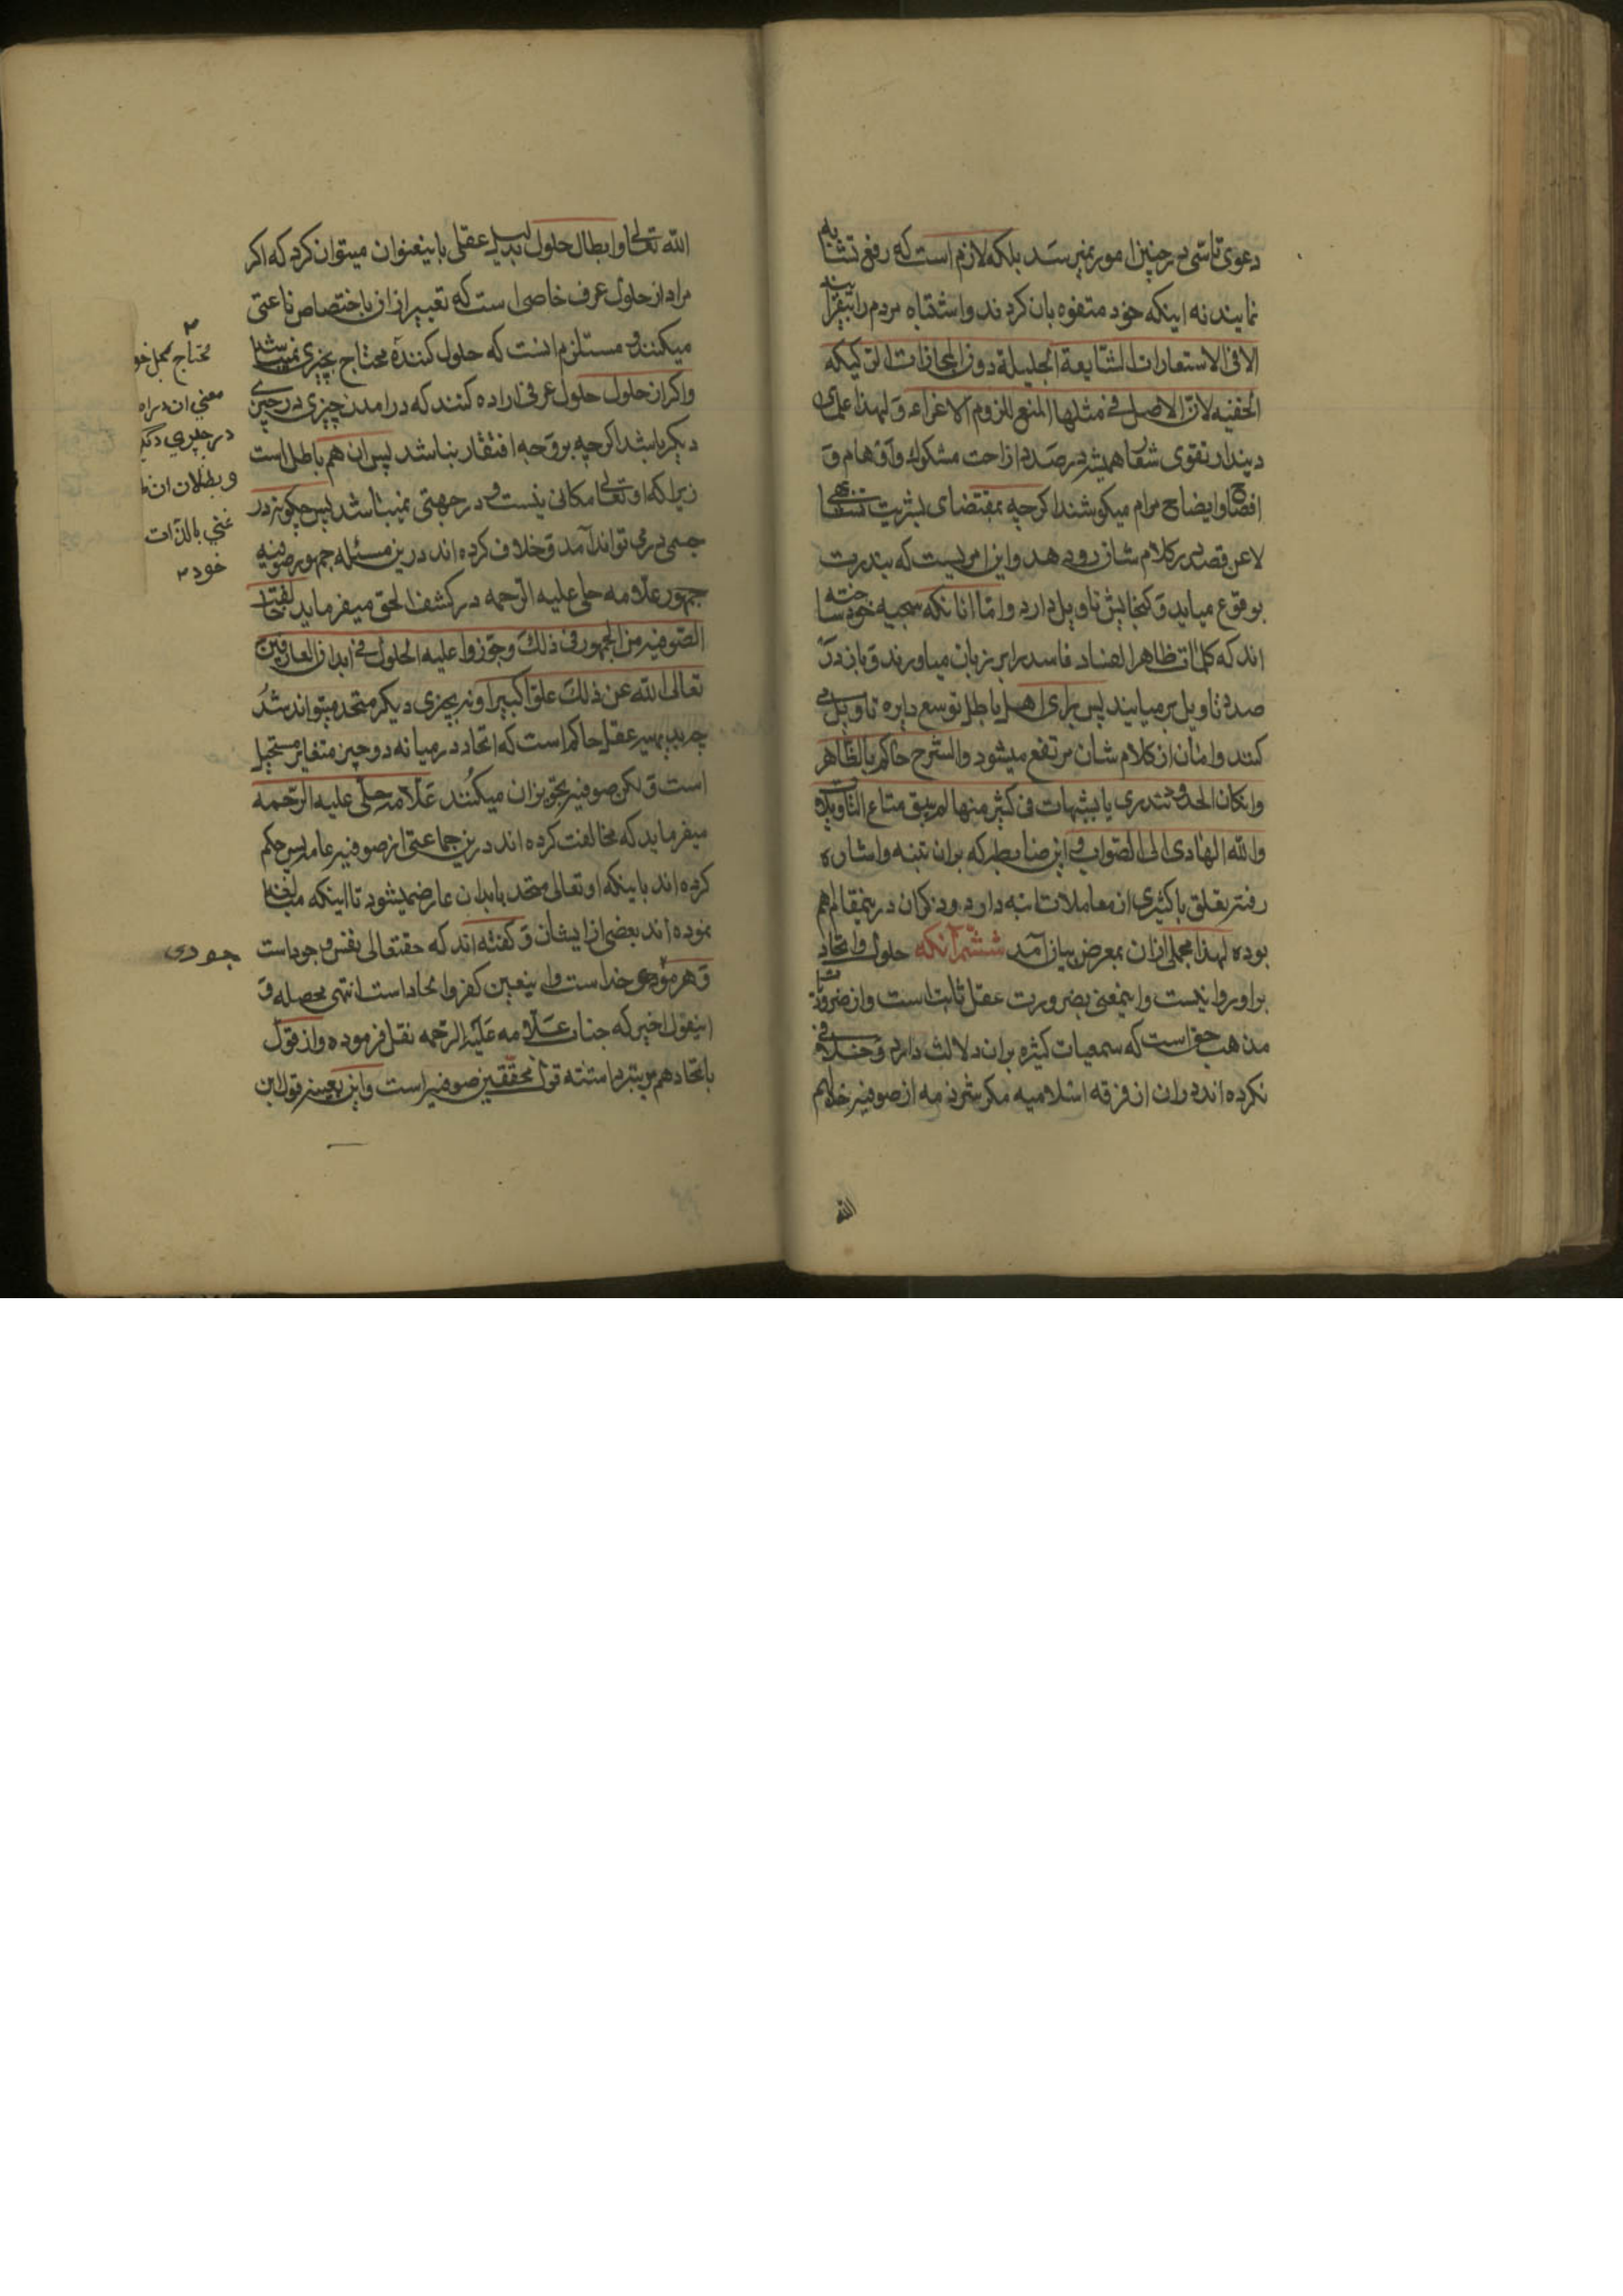 دعوی تاسّی در چنین امور نمیرسد بلکه لازم است که رفع تشابه
نمایند نه اینکه خود متفوه بان کردند و اشتباه مردم را بیفزایند
الا فی الاستعارات الشایعة الجلیلة دون المجازات الرکیکه
الخفیه لان الاصل فی مثلها المنع للزوم الاغراء و لهذا علمای
دیندار تقوی شعار همیشه در صدد ازاحت شکوک و اوهام و
افصاح و ایضاح مرام میکوشند اکرچه بمقتضای بشریت
لا عن قصد در کلام شان رو دهد و این امریست که بندرت
بوقوع میاید و کنجایش تاویل دارد و اما انانکه سجیه خود ساخته
اند که کلمات ظاهر الفساد فاسد را بر زبان میاورند و باز در
صدد تاویل بر میایند پس برای اهل باطل توسع دایره تاویل می
کنند و امان از کلام شان مرتفع میشود و الشرع حاکم بالظاهر
و ان کان الحدود تندرئ بالشبهات فی کثیر منها لم یبق متاع التاویل
و الله الهادی الی الصواب و این ضابطه که بران تنبه و اشاره
رفته تعلق باکثری از معاملات دارد و ذکران درینمقام هم
بوده لهذا مجملی ازان بمعرض بیان آمد ششم آنکه حلول و اتحاد
بر او روا نیست و اینمعنی بضرورت عقل ثابت است و از ضروریات
مذهب حق است که سمعیات کثیره بران دلالت دارد و خلافی
نکرده اند دران از فرقه اسلامیه مکر شرذمه از صوفیه خذلهم
الله
الله تعالی و ابطال حلول بدلیل عقلی باینعنوان میتوان کرد که اکر
مراد از حلول عرف خاصی است که تعبیر ازان باختصاص ناعتی
میکنند و مستلزم انست که حلول کننده محتاج بچیزی باشد
و اکر از حلول حلول عرفی اراده کنند که درامدن چیزی در چیزی
دیکر باشد اکرچه بر وجه افتقار نباشد پس ان هم باطل است
زیرا که او تعالی مکانی نیست و در جهتی نمیباشد پس چکونه در
جسمی در می تواند آمد و خلاف کرده اند درین مسئله جمهور صوفیه
جمهور علامه حلی علیه الرحمه در کشف الحق میفرماید خالفت
الصوفیه من الجمهور فی ذلک و جوّزوا علیه الحلول فی ابدان العارفین
تعالی الله عن ذلک علوّا کبیرا و نه بچیزی دیکر متحد میتواند شد
چه بدیهه عقل حاکم است که اتحاد در میانه دو چیز متغایر مستحیل
است و لکن صوفیه تجویز ان میکنند علّامه حلّی علیه الرّحمه
میفرماید که مخالفت کرده اند درین جماعتی از صوفیه عامه پس حکم
کرده اند باینکه او تعالی متحد بابدان عارفین میشود تا اینکه مبالغه
نموده اند بعضی از ایشان و کفته اند که حقتعالی نفس وجود است
و هر موجودی خداست و اینعین کفر و الحاد است انتهی محصله و
اینقول اخیر که جناب علّامه علیه الرّحمه نقل فرموده و از قول
باتحاد هم مرتبه دانسته قول محققین صوفیه است و این بعینه قول این
محتاج بمحل خو
معنی ان در اه
در چیزی دیکر
و بطلان ان ظا
غنی بالذات
خود
جودی